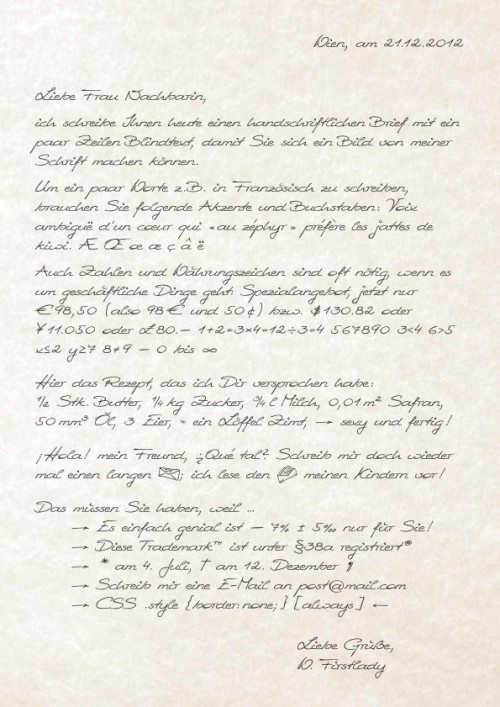 Wien, am 21.12.2012
Liebe Frau Nachbarin,
ich schreibe Ihnen heute einen handschriftlichen Brief mit ein
paar Zeilen Blindtext, damit Sie sich ein Bild von meiner
Schrift machen können.
Um ein paar Worte z.B. in Französisch zu schreiben,
brauchen Sie folgende Akzente und Buchstaben: Voix
ambiguë d'un cœur qui «au zéphyr» préfère les jattes de
kiwi. Æ Œ œ æ ç â ë
Auch Zahlen und Währungszeichen sind oft nötig, wenn es
um geschäftliche Dinge geht: Spezialangebot, jetzt nur
€ 98,50 (also 98 € und 50 ¢) bzw. $ 130.82 oder
¥ 11.050 oder £ 80.— 1+2=3×4=12÷3=4 567890 3<4 6>5
x≤2 y≥7 8≠9 — 0 bis ∞
Hier das Rezept, das ich Dir versprochen habe:
½ Stk. Butter, ¼ kg Zucker, ¾ l Milch, 0,01 m² Safran,
50 mm³ Öl, 3 Eier, = ein Löffel Zimt, → sexy und fertig!
¡Hola! mein Freund, ¿Qué tal? Schreib mir doch wieder
mal einen langen ; ich lese den meinen Kindern vor!
Das müssen Sie haben, weil ...
→ Es einfach genial ist — 7% ± 5‰ nur für Sie!
→ Diese Trademark™ ist unter §38a registriert®
→ * am 4. Juli, † am 12. Dezember
→ Schreib mir eine E-Mail an post@mail.com
→ CSS .style {border:none;} [always] ←
Liebe Grüße,
W. Firstlady